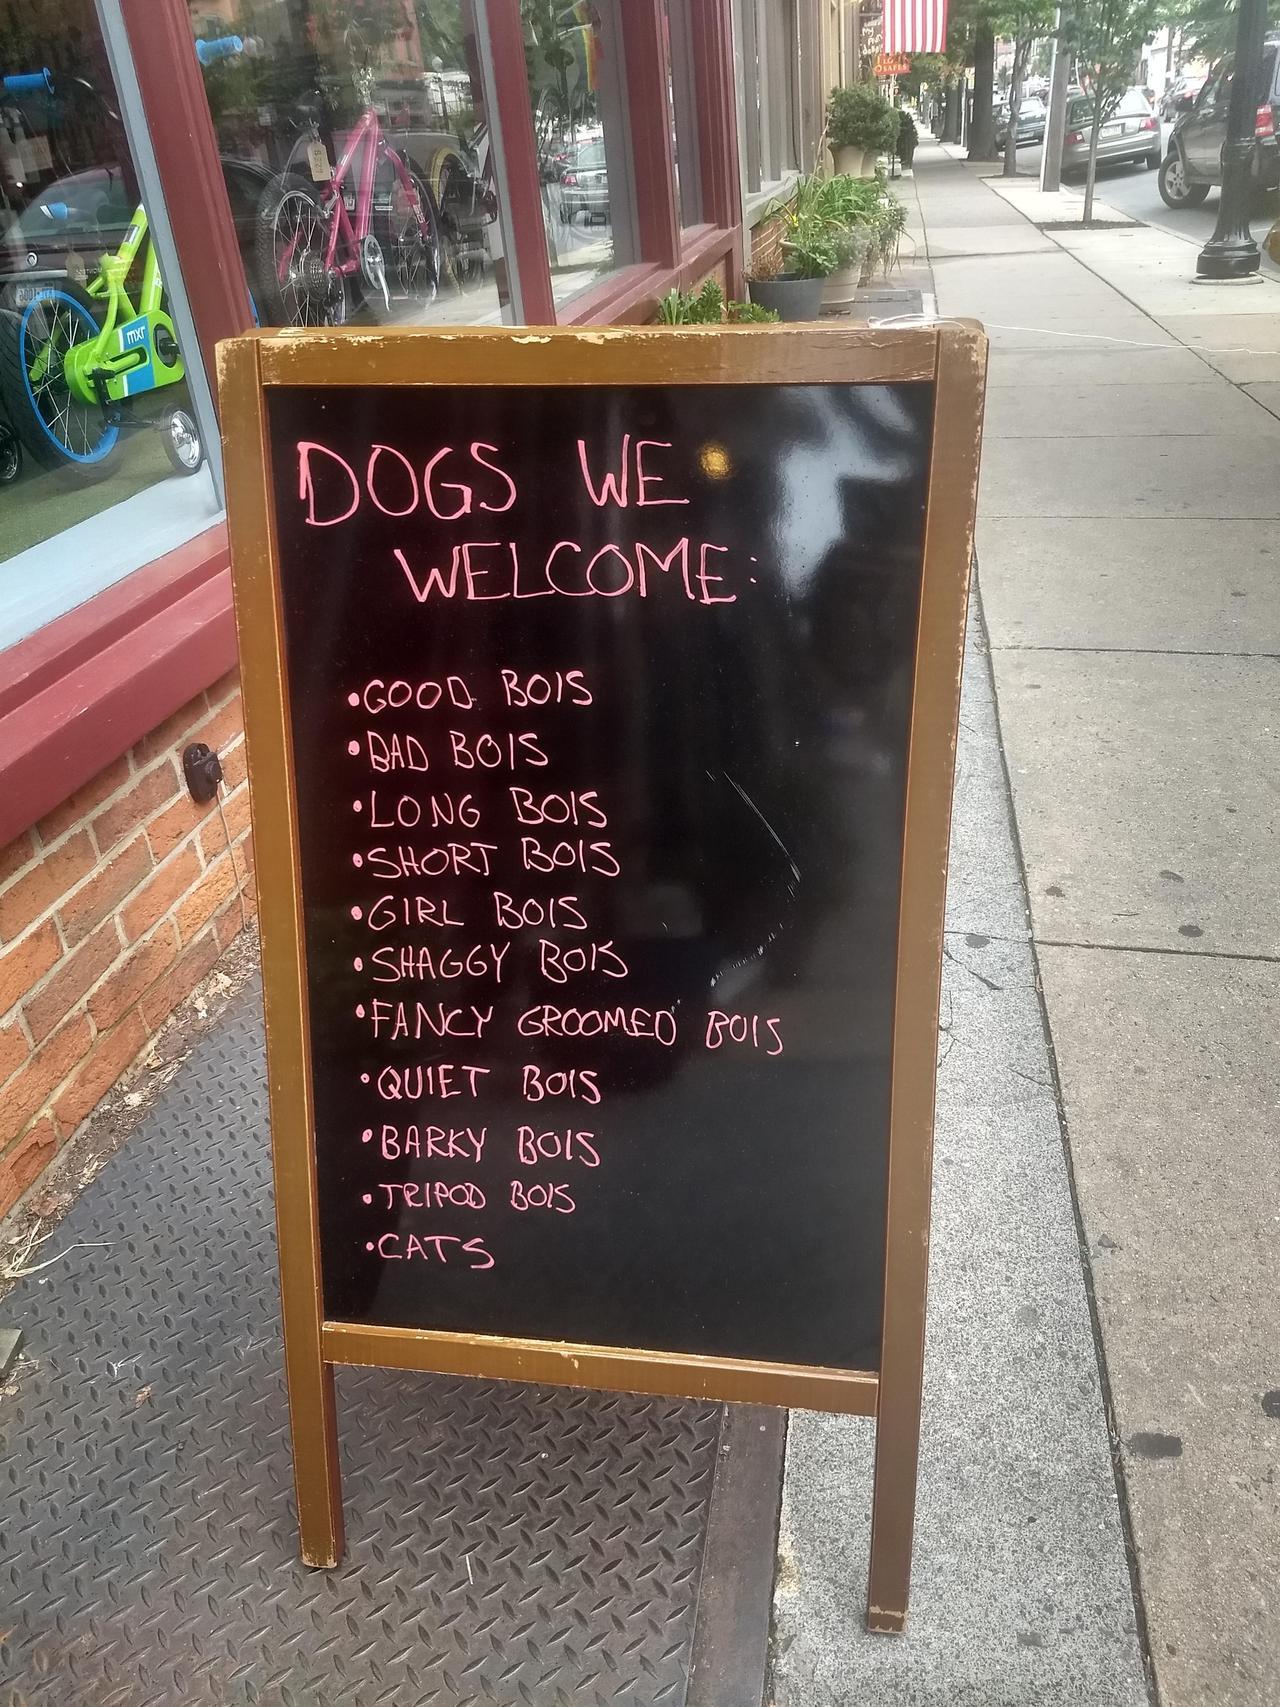 DOGS WE
WELCOME:
•GOOD BOIS
•BAD BOIS
•LONG BOIS
•SHORT BOIS
•GIRL BOIS
•SHAGGY BOIS
•FANCY GROOMED BOIS
•QUIET BOIS
•BARKY BOIS
•TRIPOD BOIS
•CATS
mxr